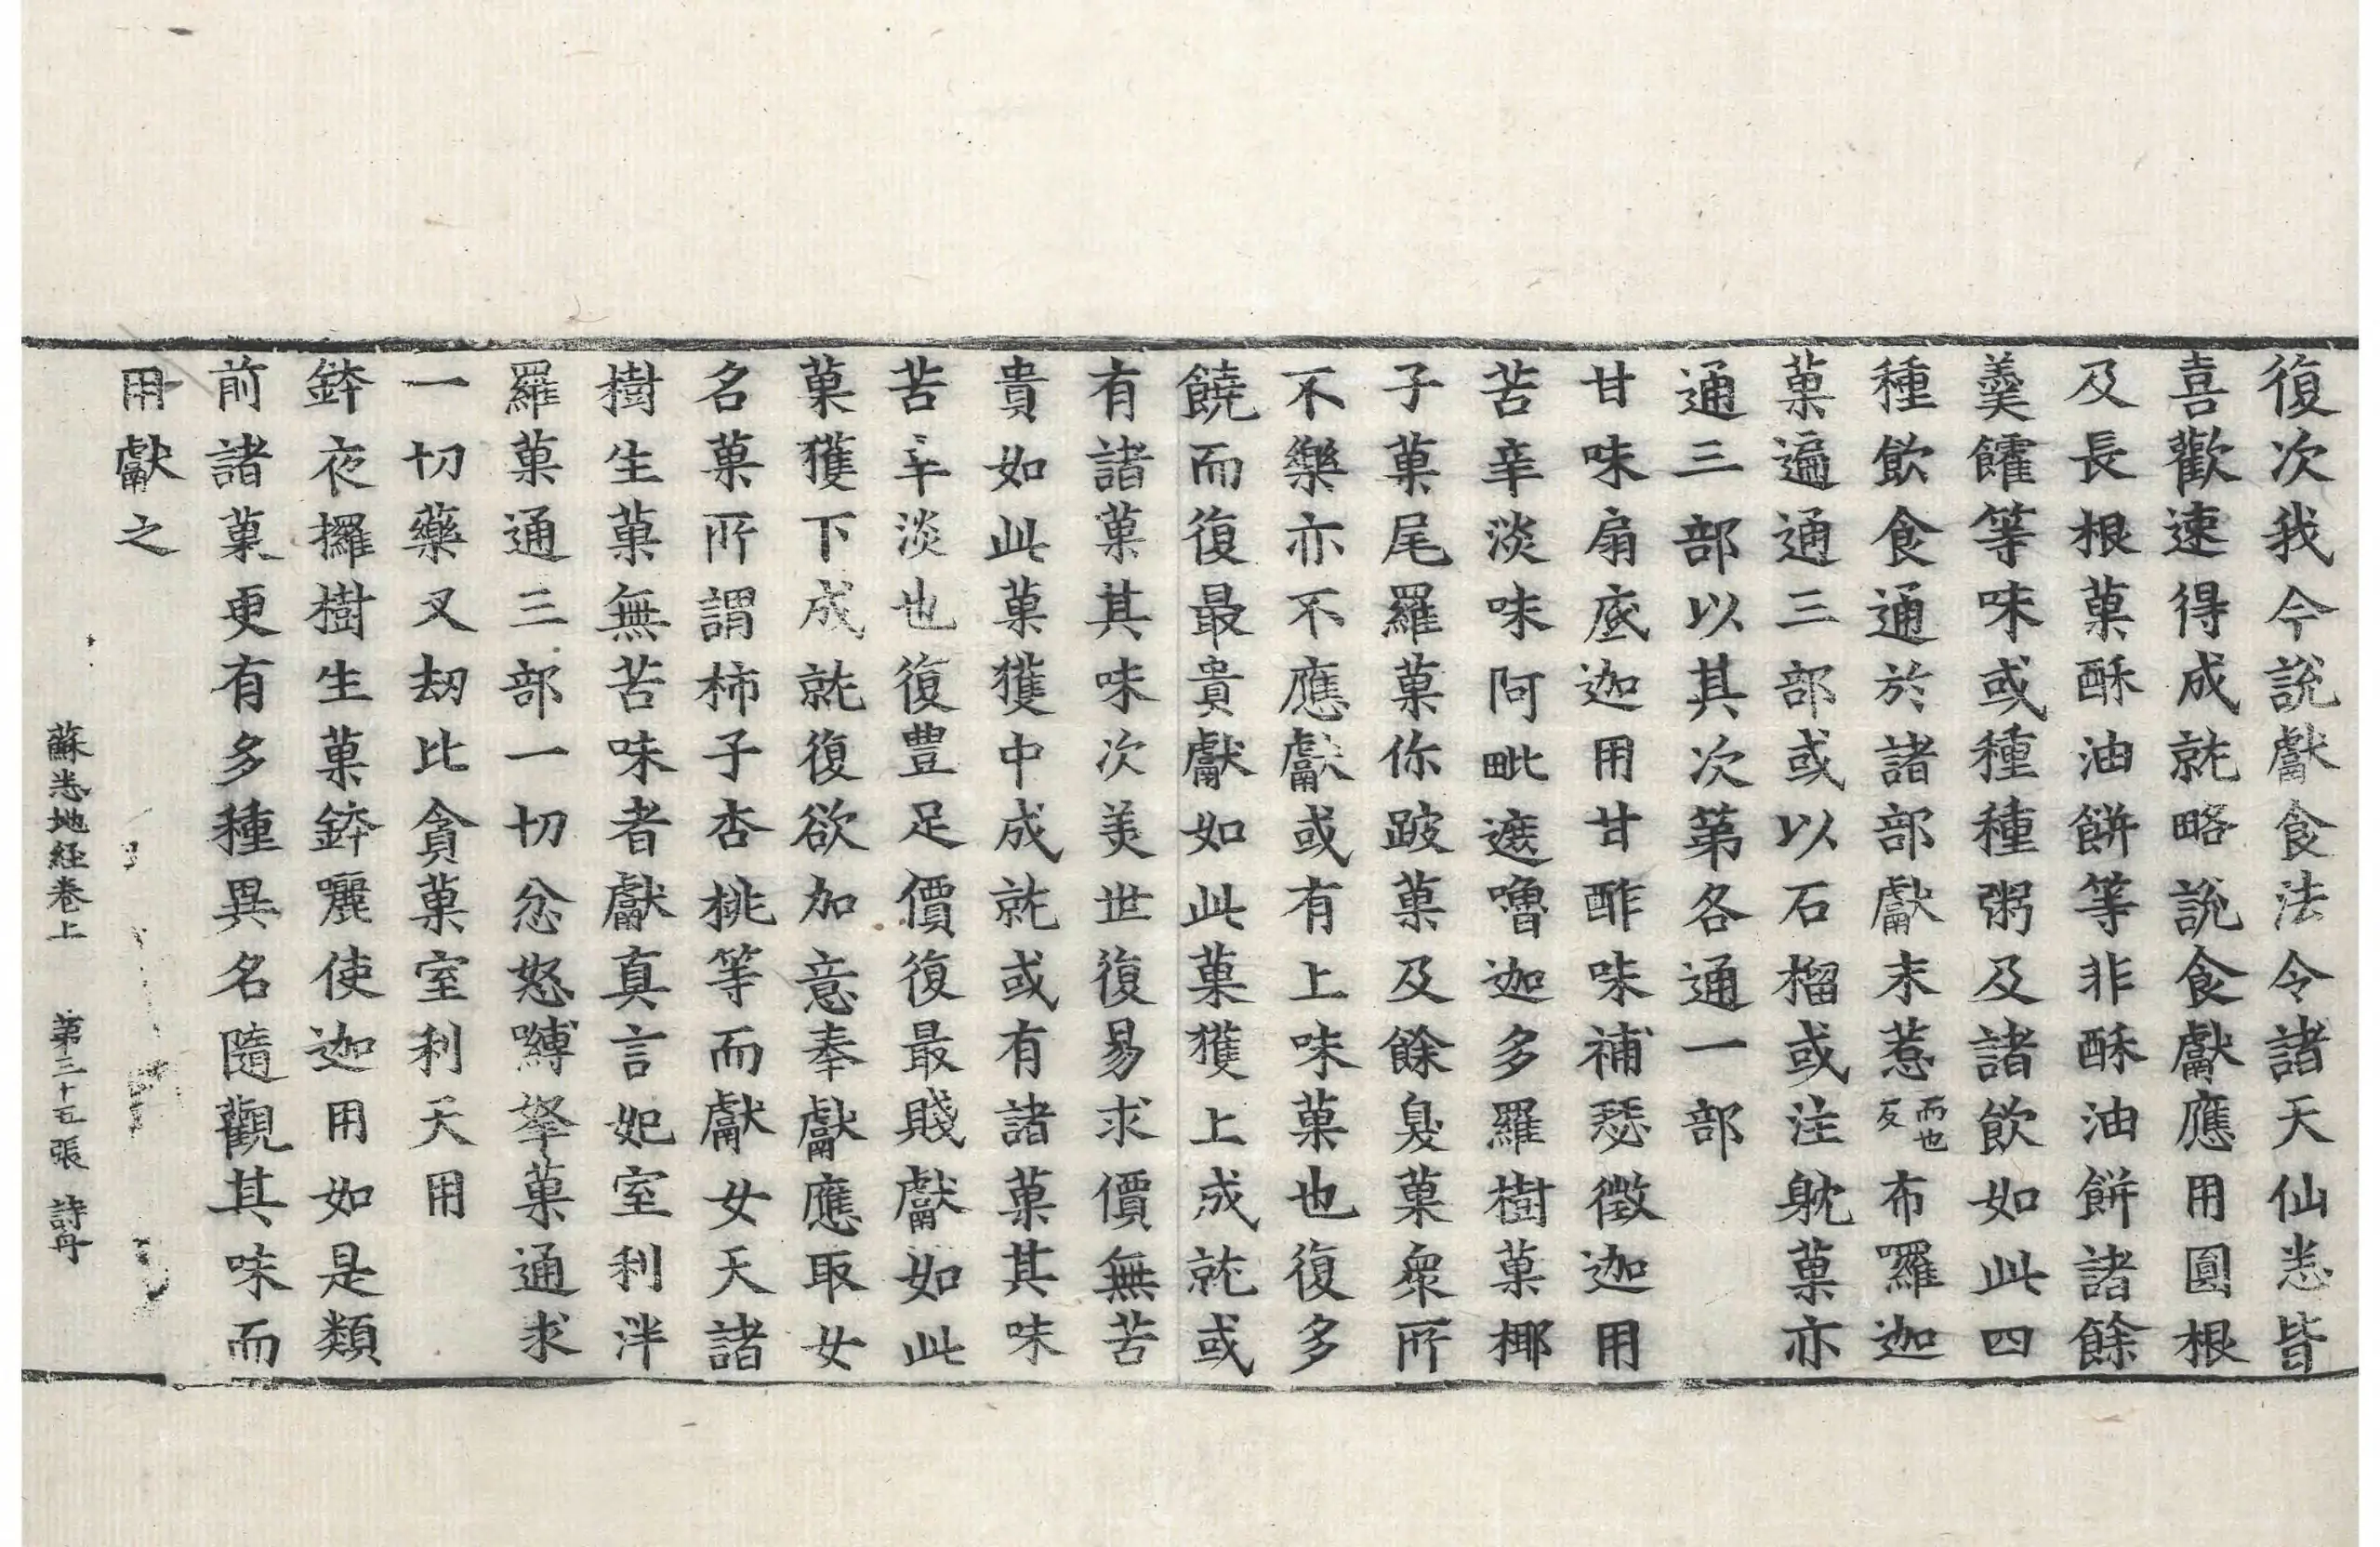 復次我今說獻食法令諸天仙悉皆
喜歡速得成就略說食獻應用圓根
及長根菓酥油餅等非酥油餅諸餘
羹臛等味或種種粥及諸飲如此四
種飲食通於諸部獻末惹而也反布羅迦
菓遍通三部或以石榴或注躭菓亦
通三部以其次第各通一部
甘味扇底迦用甘酢味補瑟徵迦用
苦辛淡味阿毗遮嚕迦多羅樹菓椰
子菓尾羅菓你跛菓及餘臭菓衆所
不樂亦不應獻或有上味菓也復多
饒而復最貴獻如此菓獲上成就或
有諸菓其味次美世復易求價無苦
貴如此菓獲中成就或有諸菓其味
苦辛淡也復豊足價復最賤獻如此
菓獲下成就復欲加意奉獻應取女
名菓所謂柿子杏桃等而獻女天諸
樹生菓無苦味者獻真言妃室利泮
羅菓通三部一切忿怒嚩拏菓通求
一切藥叉劫比貪菓室利天用
鉢夜攞樹生菓鉢囇使迦用如是類
前諸菓更有多種異名隨觀其味而
用獻之
蘇悉地経卷上 第三十五張 詩丹